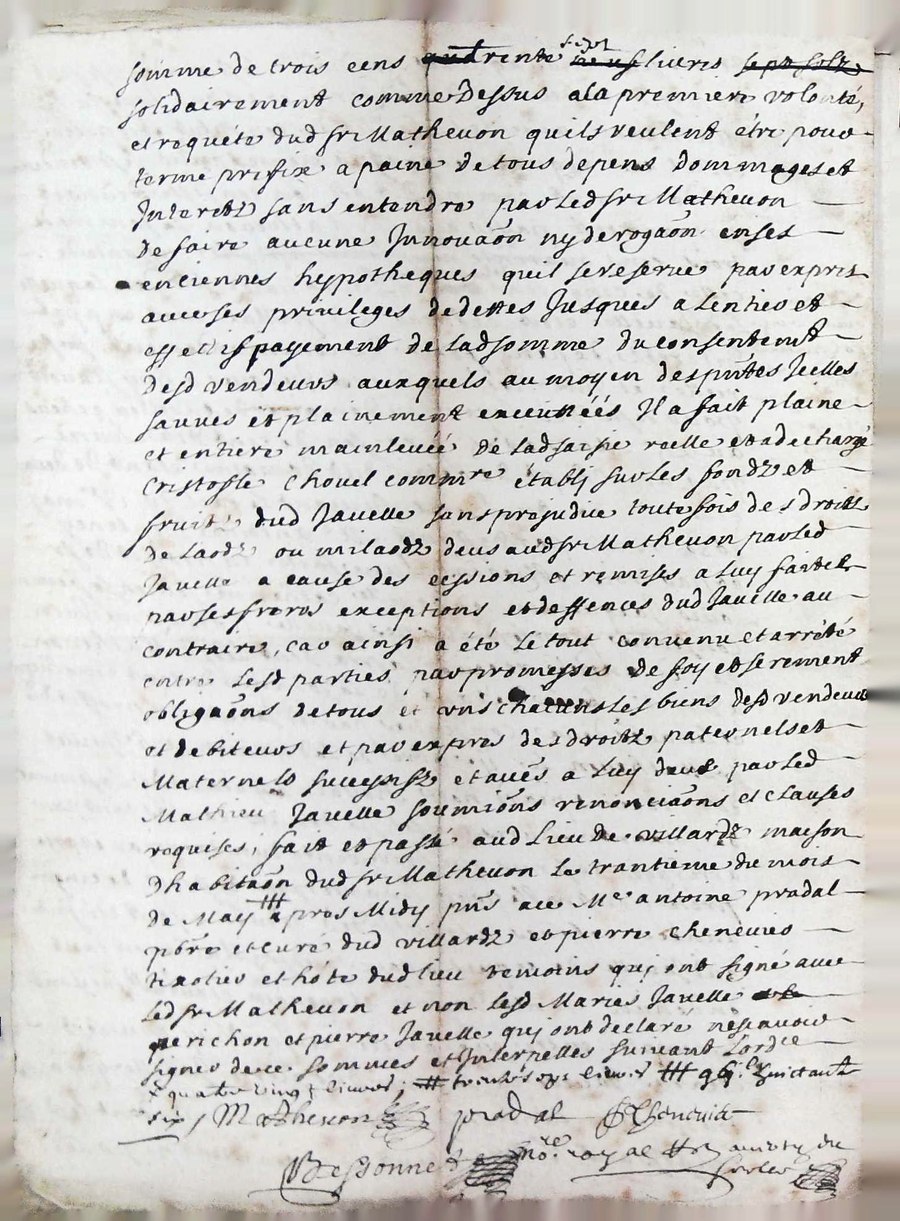 somme de trois cens quatrente sept neuf livres sept solz
solidairement comme dessus a la premiere volonté,
et requéte dud sr Mathevon quils veulent étre pour
terme prefixe a paine de tous depens dommages et
Interetz sans entendre par Led sr Mathevon
de faire aucune Innovaõn ny derogaõn en ses
enciennes hypotheques quil se reserve par expres
avec ses privileges de dettes Jusques a Lentier et
effectif payement de Lad somme du consentemt
desd vendeurs auxquels au moyen des pñtes Icelles
sauves et plainement executtéés Il a fait plaine
et entiere mainlevéé de Lad saisie reelle et a dechargé
Cristofle Chovel commre établj sur Les fondz et
fruitz dud Javelle sans prejudice toutefois des droitz
de Laodz ou milaodz deus aud sr Mathevon par Led
Javelle a cause des cessions et remises a Luy faittes
par ses freres exceptions et deffences dud Javelle au
contraire, car ainsi a été Le tout convenu et arrété
entre Lesd parties par promesses de foy et serement
obligaõns de tous et uns chacuns Les biens desd vendeurs
et debiteurs et par expres des droitz paternels et
Maternels successifz et avës a Luy deus par Led
Mathieu Javelle soumiõns renonciaõns et clauses
requises, fait et passé aud Lieu de villardz maison
dhabitaõn dud sr Mathevon Le trantieme du mois
de May # apres Midy pñs avec Me antoine pradal
pbre et curé dud villardz et pierre chenevier
tixotier et hóte dud lieu temoins quj ont signé avec
Led sr Mathevon et non Lesd Marie Javelle
perichon et pierre Javelle quj ont declaré nescavoir
signer de ce sommes et Interpelles suivant Lordce
quatre vingt livres; # trente sept livres #
six / Mathevon pradal Chenevier
Besdonnet nore royal